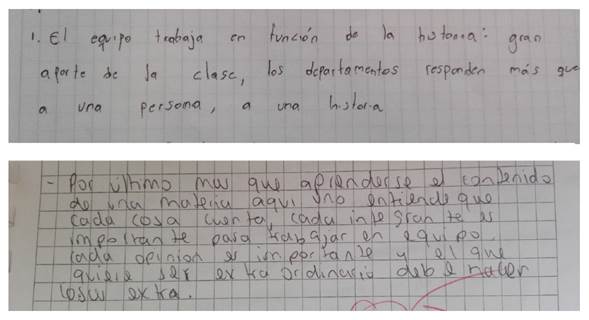 1. El equipo trabaja en función de la historia: gran
aporte de la clase, los departamentos responden más que
a una persona, a una historia
- Por último mas que aprenderse el contenido
de una materia aqui uno entiende que
cada cosa cuenta, cada integrante es
importante para trabajar en equipo.
cada opinion es importante y el que
quiere ser extraordinario debe hacer
extra.